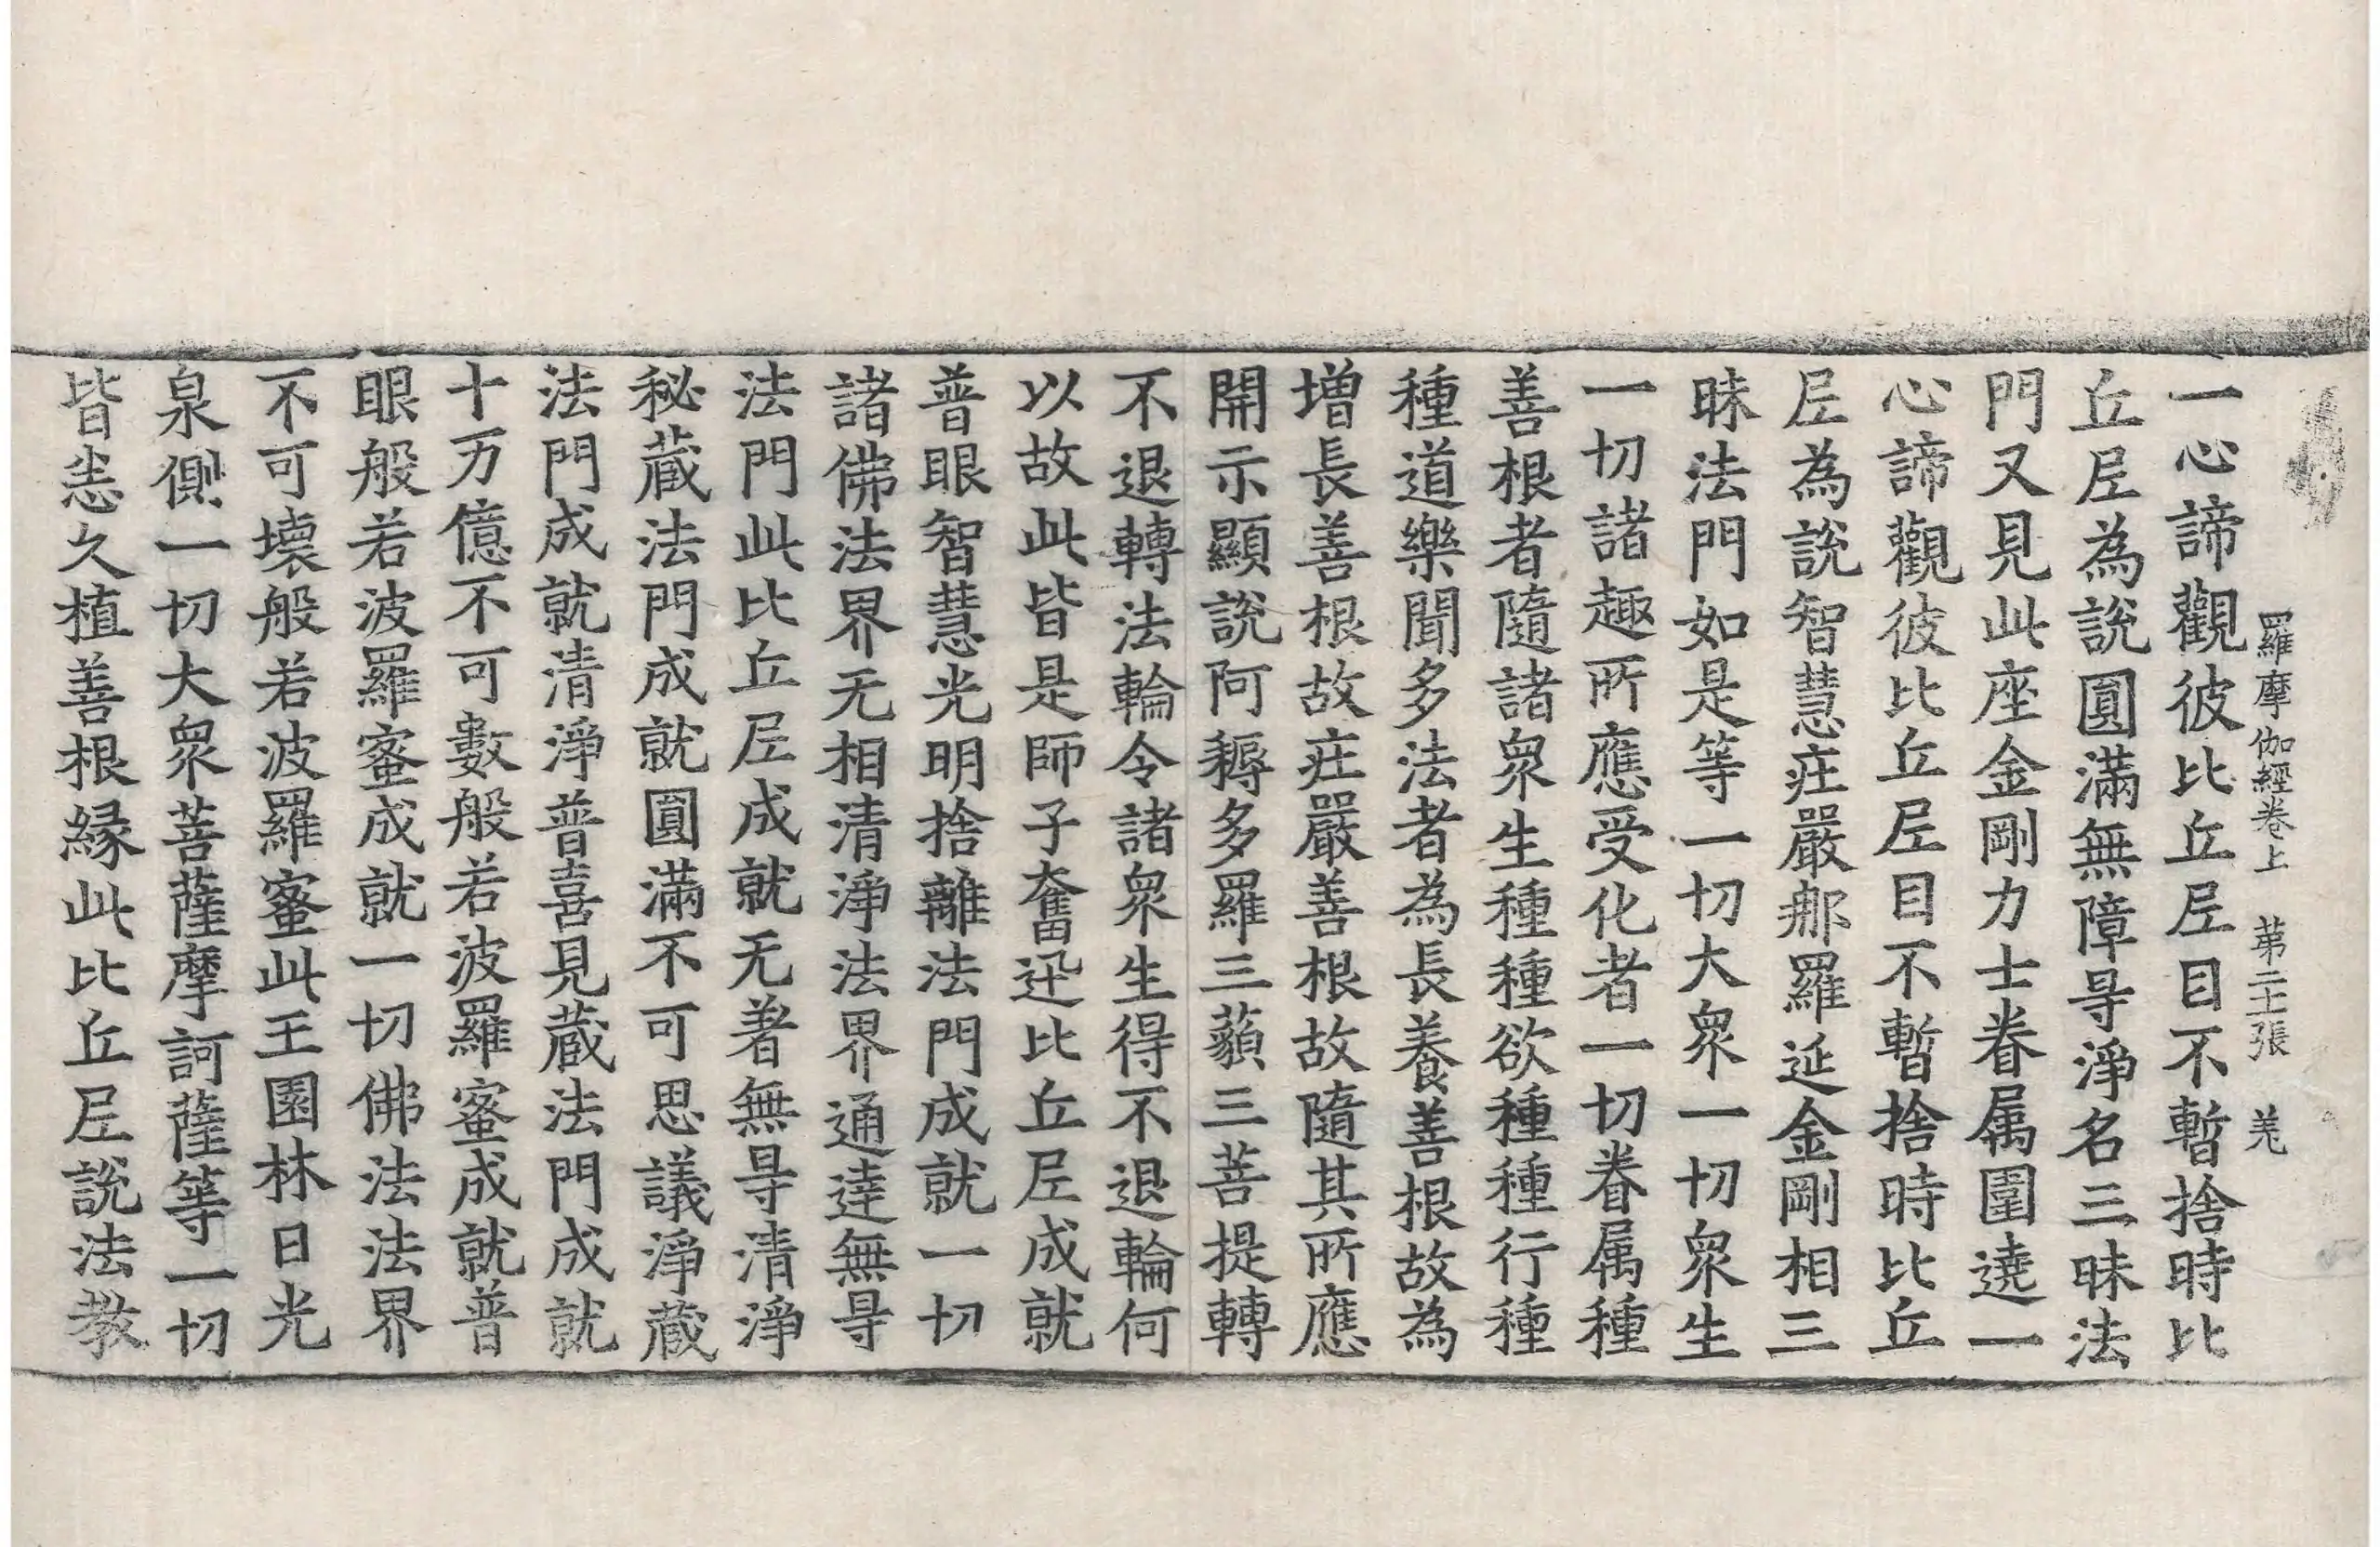 羅摩伽經卷上 第二十張 羌
一心諦觀彼比丘𡰱目不暫捨時比
丘𡰱為說圓滿無障㝵淨名三昧法
門又見此座金剛力士眷属圍遶一
心諦觀彼比丘𡰱目不暫捨時比丘
𡰱為說智慧庄嚴那羅延金剛相三
昧法門如是等一切大衆一切衆生
一切諸趣所應受化者一切眷属種
善根者隨諸衆生種種欲種種行種
種道樂聞多法者為長養善根故為
增長善根故庄嚴善根故隨其所應
開示顯說阿耨多羅三藐三菩提轉
不退轉法輪令諸衆生得不退輪何
以故此皆是師子奮迅比丘𡰱成就
普眼智慧光明捨離法門成就一切
諸佛法界无相清淨法界通達無㝵
法門此比丘𡰱成就无著無㝵清淨
秘藏法門成就圓滿不可思議淨藏
法門成就清淨普喜見藏法門成就
十万億不可數般若波羅蜜成就普
眼般若波羅蜜成就一切佛法法界
不可壞般若波羅蜜此王園林日光
泉側一切大衆菩薩摩訶薩等一切
皆悉久植善根緣此比丘𡰱說法教